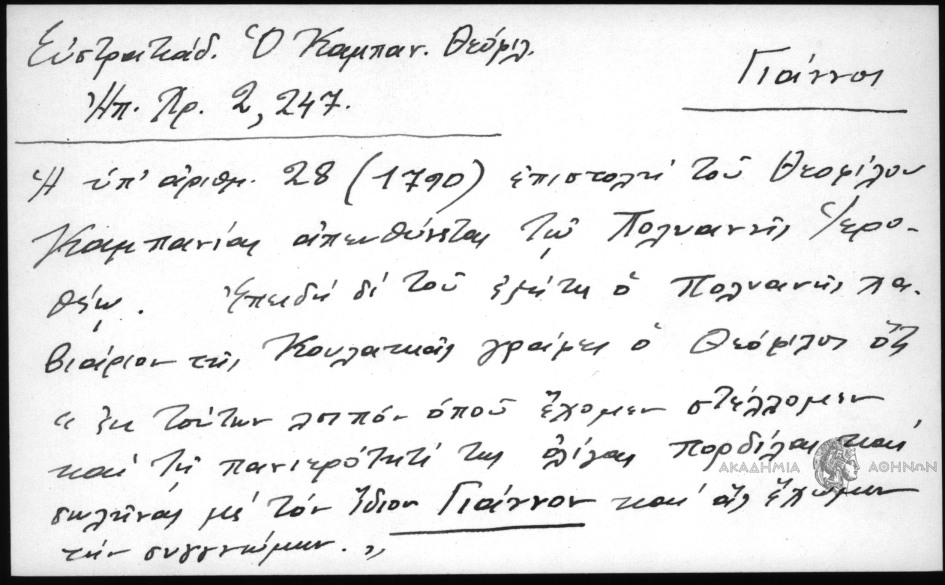 Εὐστρατιάδ. Ὁ Καμπαν. Θεόφιλ.
Ἠπ. Χρ. 2, 247.
Γιάννος
Ἡ ὑπ' ἀριθμ. 28 (1790) ἐπιστολὴ τοῦ Θεοφίλου
Καμπανίας ἀπευθύνεται τῷ Πολυανῆς Ἱερο-
θέῳ. Ἐπειδὴ δὲ τοῦ ἐζήτη ὁ Πολυανῆς χα-
βιάριον τῆς Κουλακιᾶς γράφει ὁ Θεόφιλος ὅτι
" ἐκ τούτων λοιπόν ὁποῦ ἔχομεν στέλλομεν
καὶ τῇ πανιερότητί της ὀλίγας πορδίλας καὶ
σωλῆνας μὲ τὸν ἴδιον Γιάννον καὶ ἂς ἔχωμεν
τὴν συγγνώμην. "
ΑΚΑΔΗΜΙΑ ΑΘΗΝΩΝ